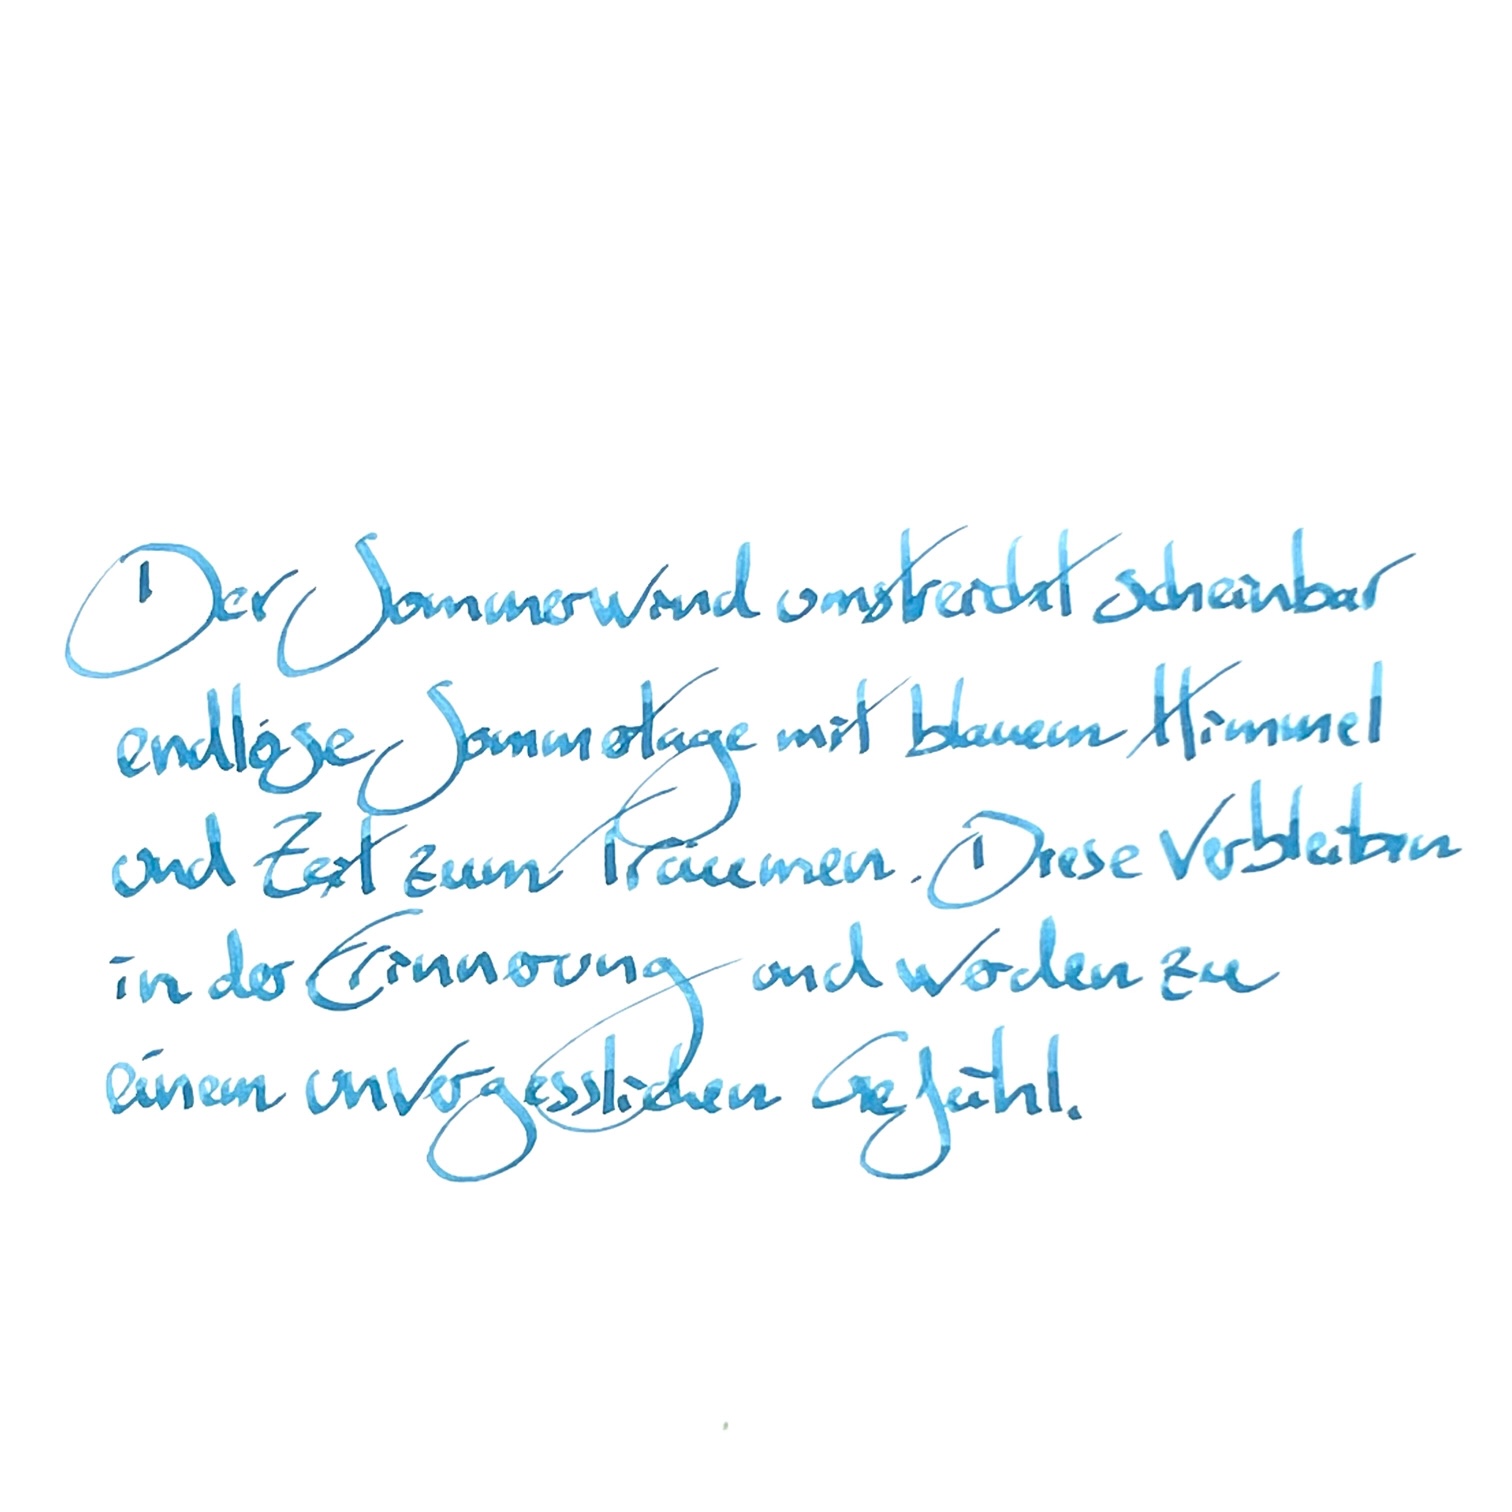 Der Sommerwind umstreicht scheinbar
endlose Sommertage mit blauem Himmel
und Zeit zum Träumen. Diese Verbleiben
in der Erinnerung und werden zu
einem unvergesslichen Gefühl.